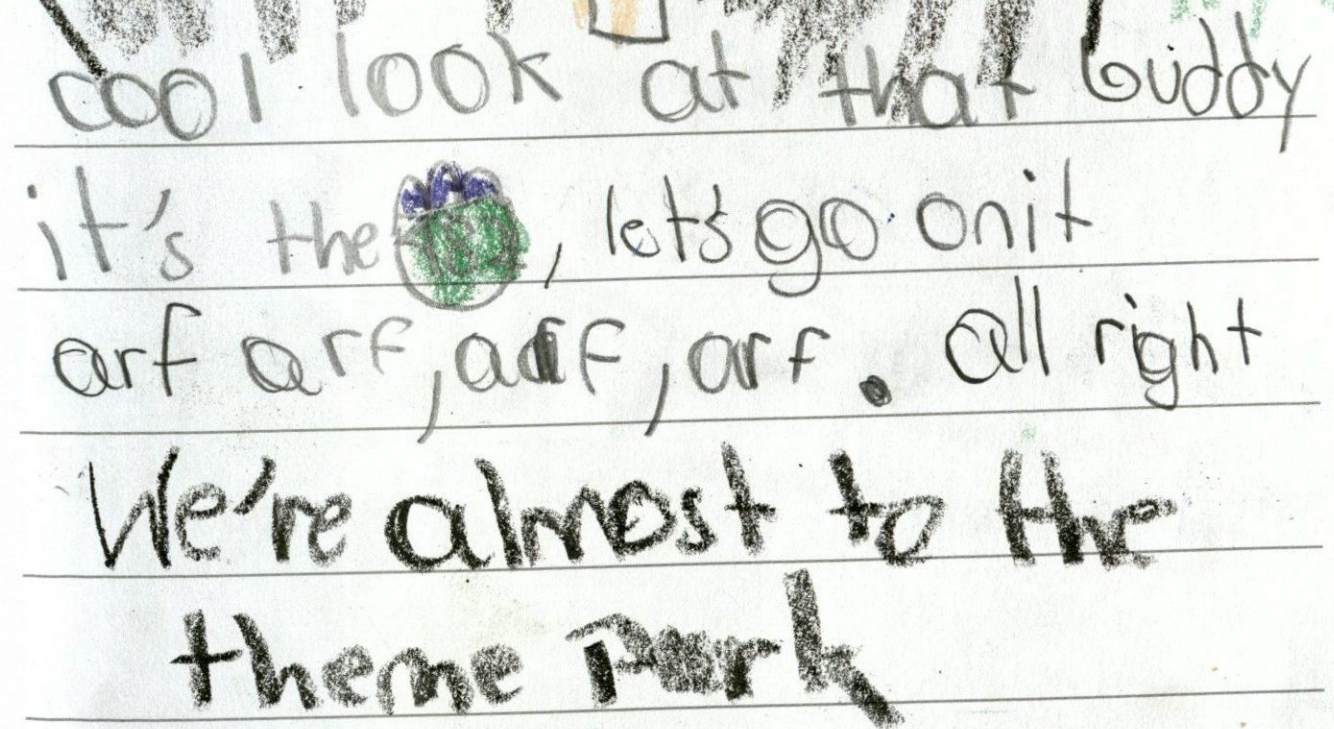 cool look at that buddy
it's the , let's go on it
arf arf, arf, arf. all right
We're almost to the
theme Park